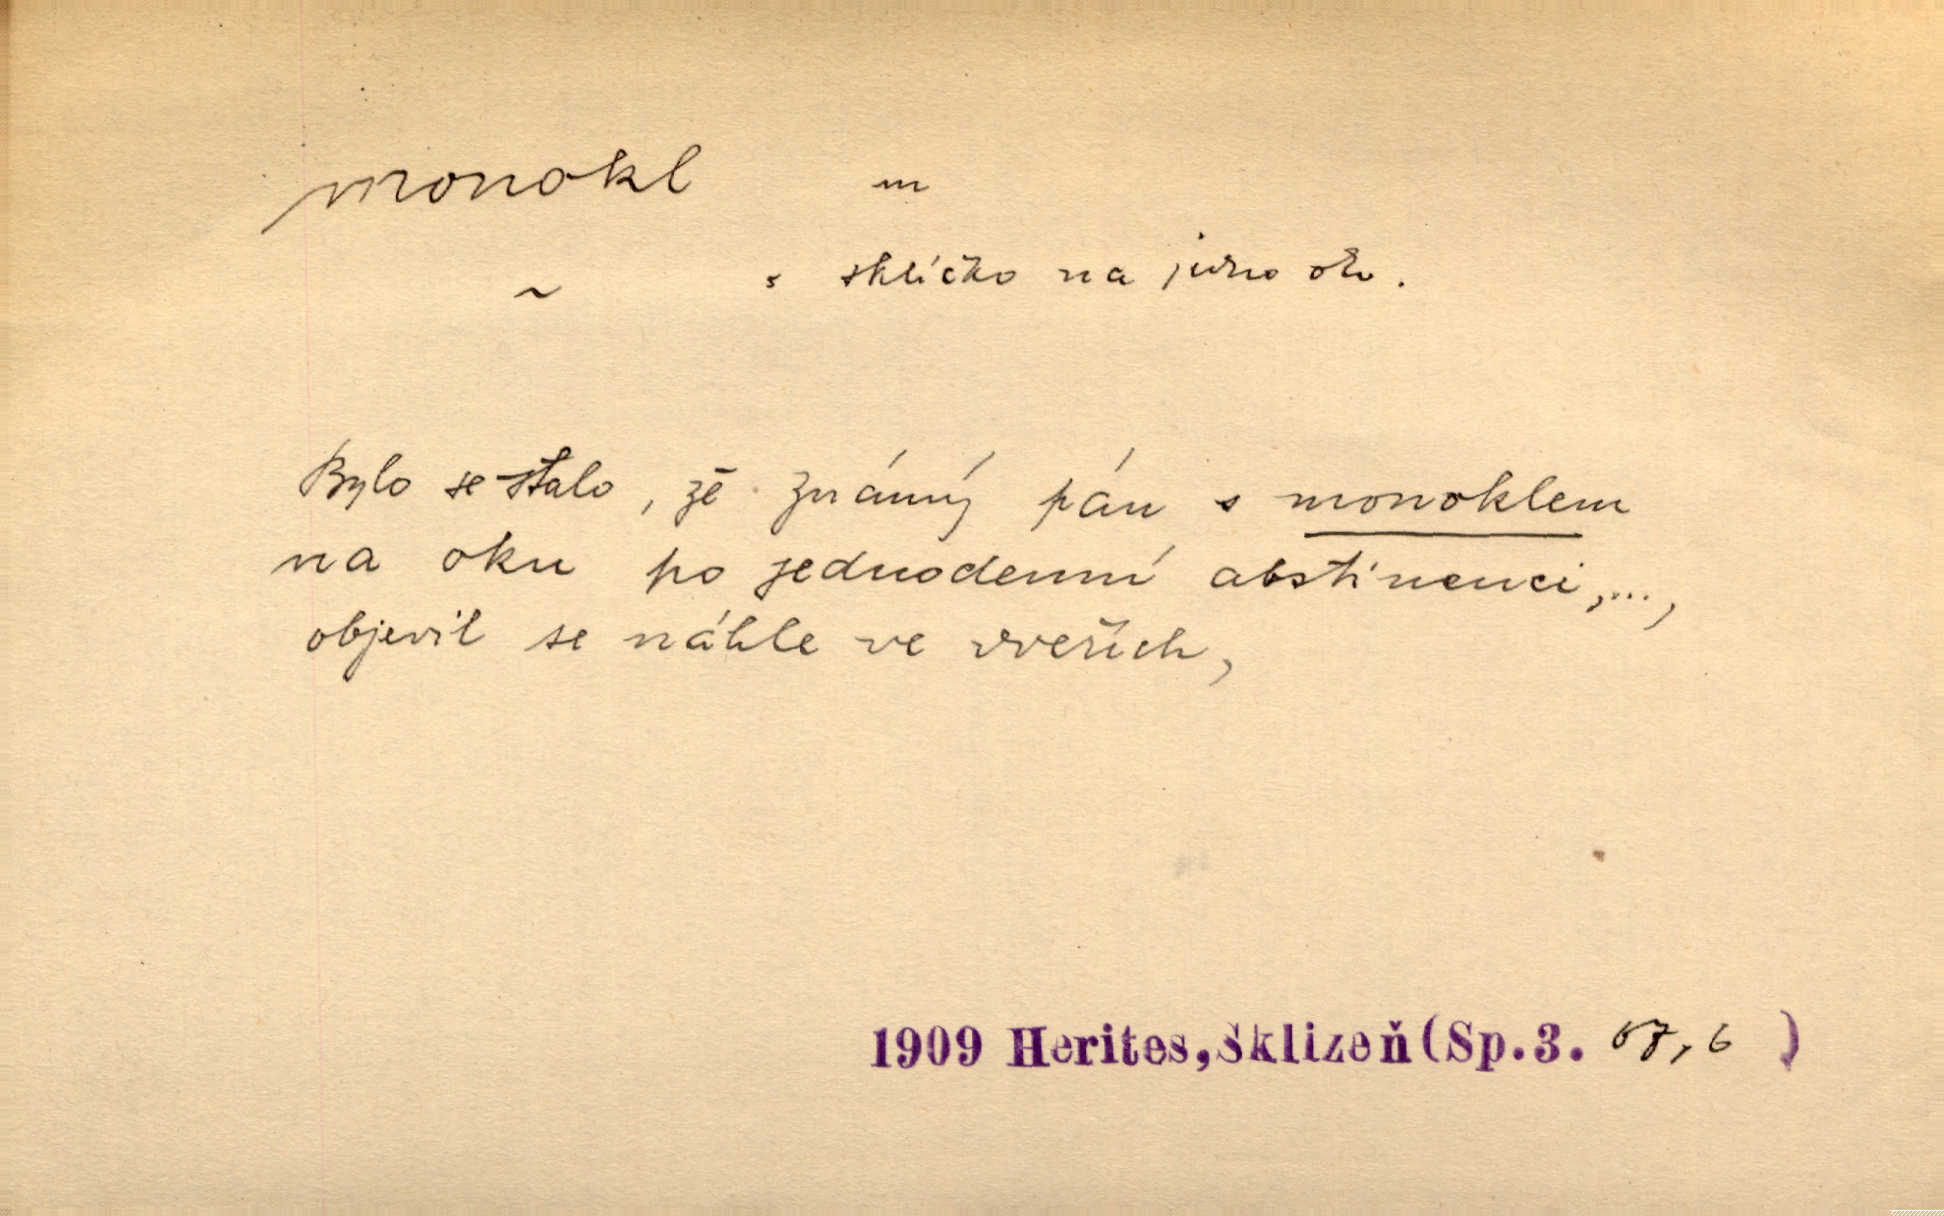 monokl m
~ s sklíčko na jedno oko.
Bylo se stalo, že známý pán s monoklem
na oku po jednodenní abstinenci,...,
objevil se náhle ve dveřích,
1909 Herites, Sklizeň (Sp.3. 67, 6 )